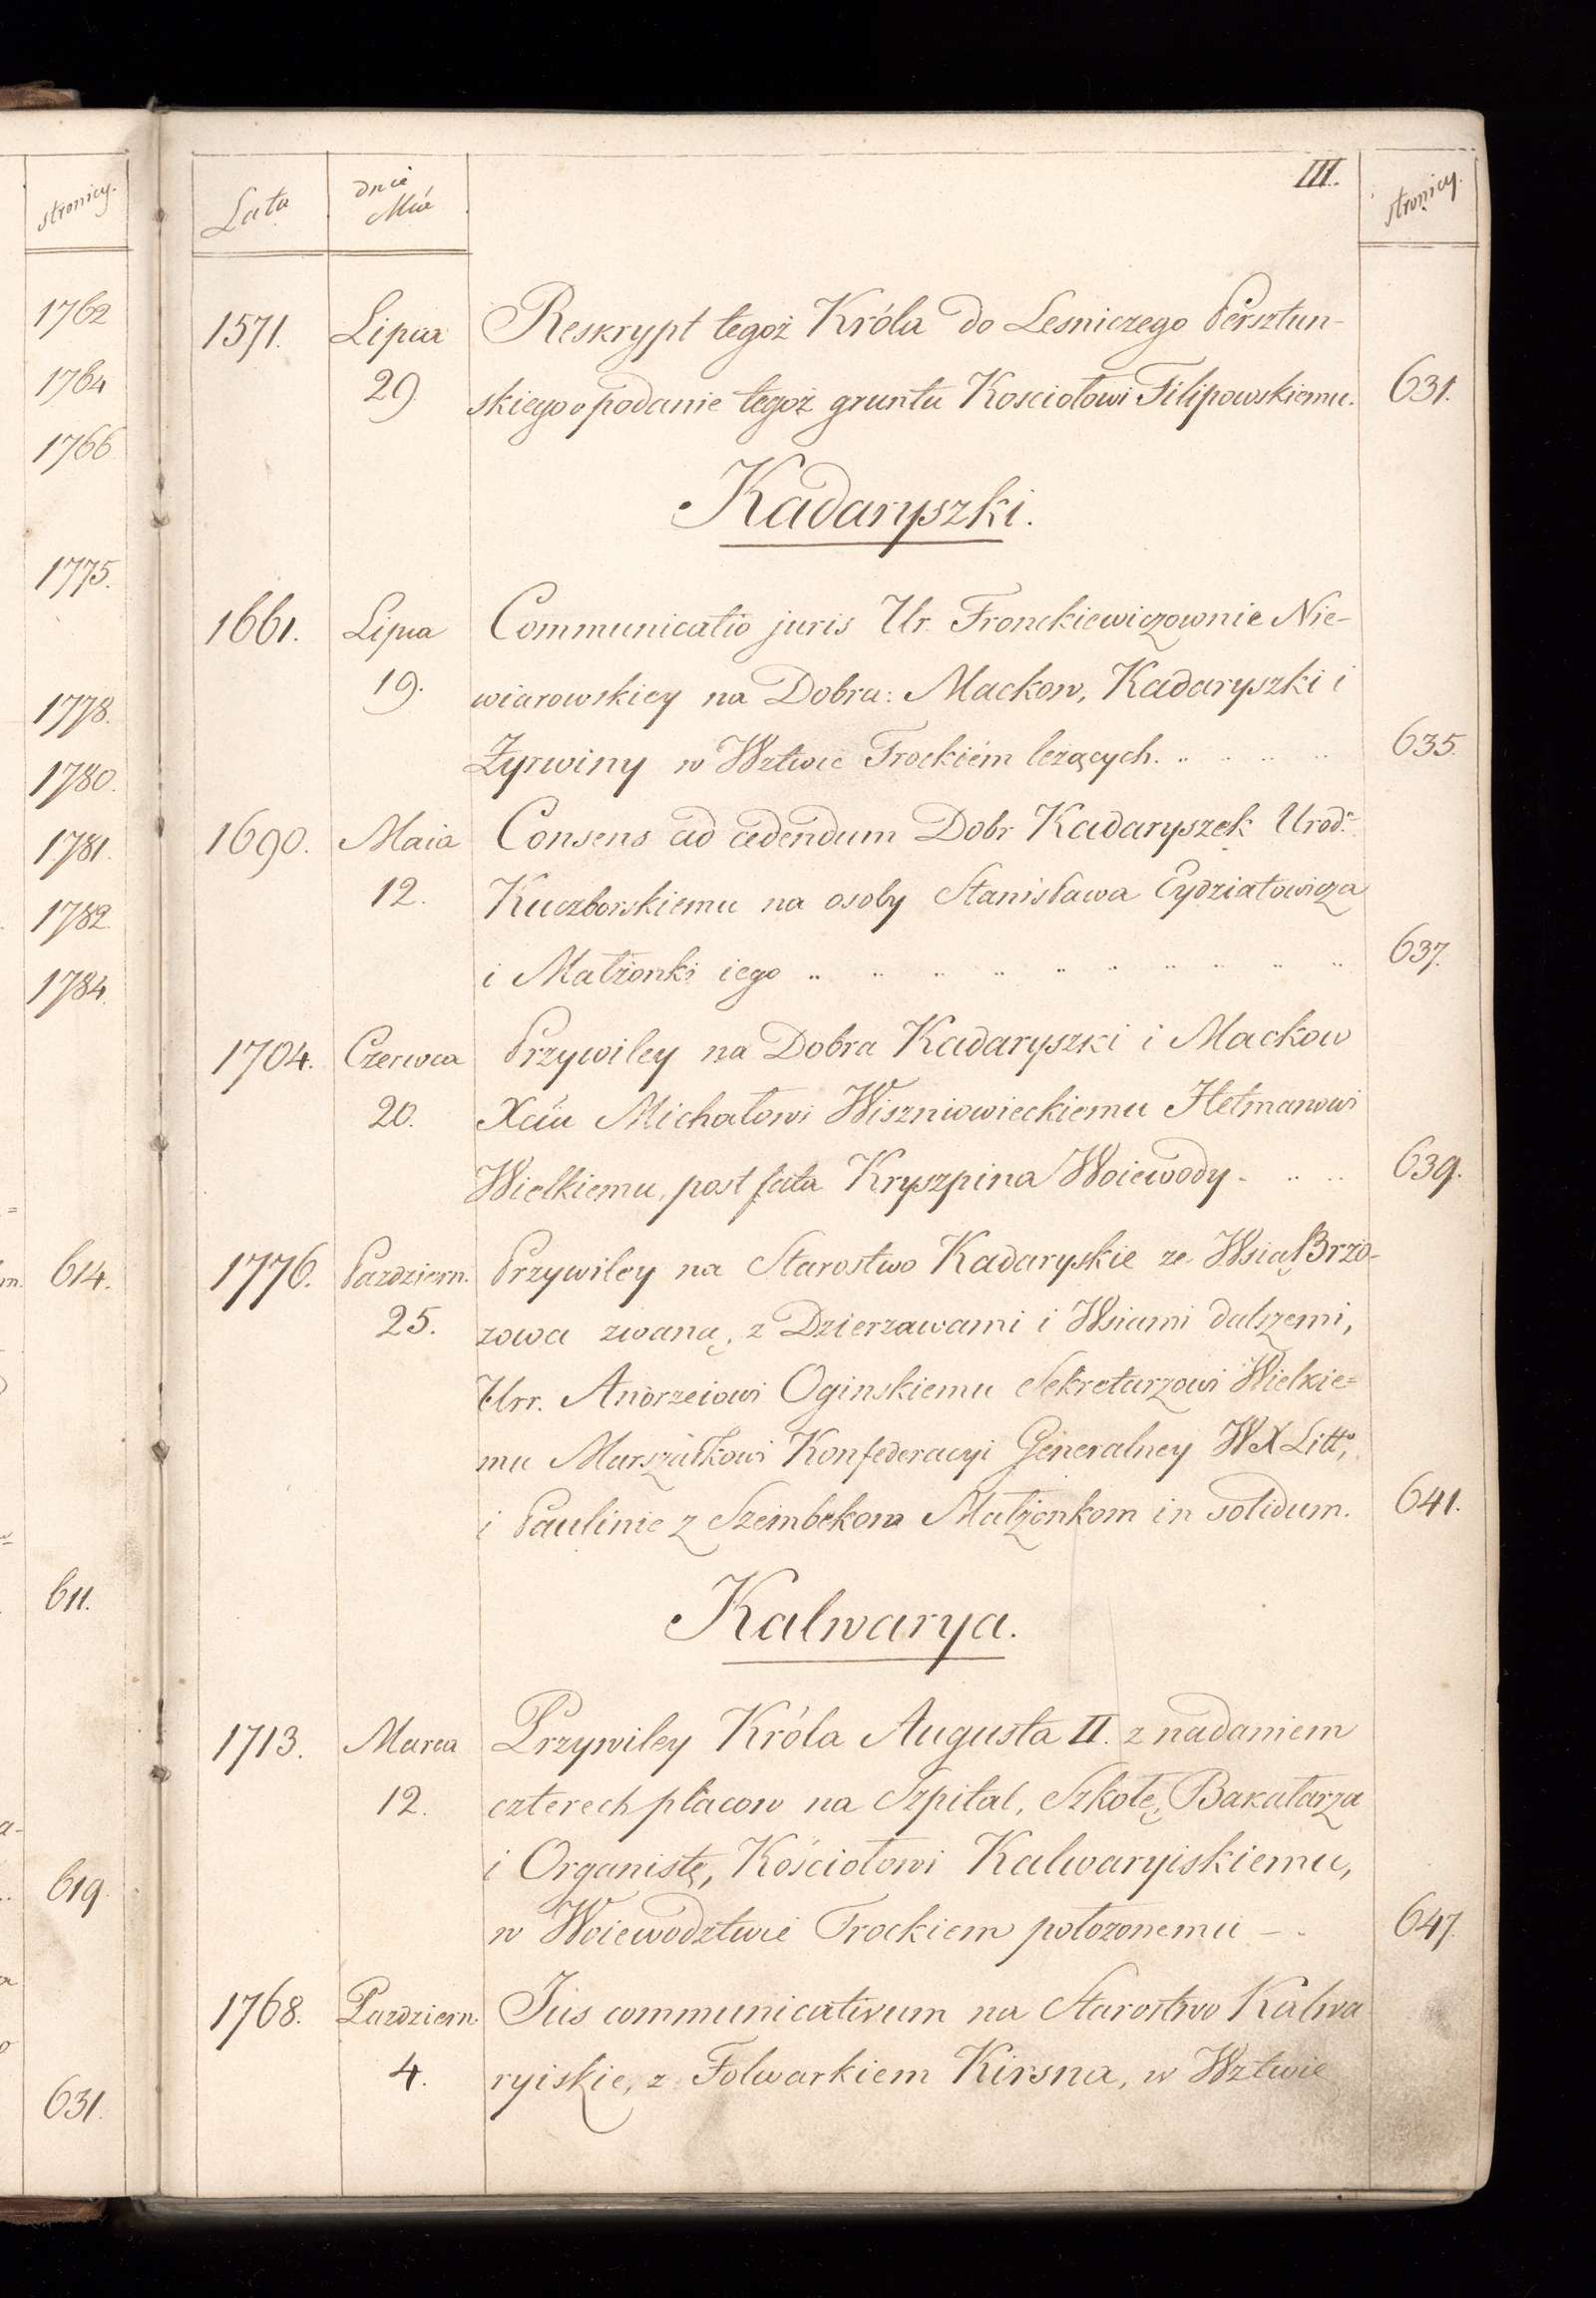 stronicy.
1762
1764
1766
1775.
1778.
1780.
1781.
1782.
1784.
614.
611.
619.
631.
Lata
dnie
Mca
III.
stronicy.
1571. Lipca Reskrypt tegoż Króla do Lesniczego Persztun-
29 skiego o podanie tegoż gruntu Kosciołowi Filipowskiemu. 631.
Kadaryszki.
1661. Lipca Communicatio juris Ur. Fronckiewiczownie Nie-
19. wiarowskiey na Dobra: Mackow, Kadaryszki i
Żyrwiny w Wztwie Trockiém leżących. .. .. .. .. 635.
1690. Maia Consens ad cedendum Dobr Kadaryszek Urod:
12. Kuczborskiemu na osoby Stanisława Eydziatowicza
i Małżonki iego .. .. .. .. .. .. .. .. .. .. 637.
1704. Czerwca Przywiley na Dobra Kadaryszki i Mackow
20. Xciu Michałowi Wiszniowieckiemu Hetmanowi
Wielkiemu, post fata Kryszpina Woiewody. .. .. 639.
1776. Pazdziern. Przywiley na Starostwo Kadaryskie ze Wsią Brzo-
25. zowa zwaną, z Dzierzawami i Wsiami dalszemi,
Urr. Andrzeiowi Oginskiemu Sekretarzowi Wielkie=
mu Marszałkowi Konfederacyi Generalney WXLitt,
i Paulinie z Szembekow Małżonkom in solidum. 641.
Kalwarya.
1713. Marca Przywiley Króla Augusta II. z nadaniem
12. czterech placow na Szpital, Szkołę, Bakałarza
i Organistę, Kościołowi Kalwaryiskiemu,
w Woiewodztwie Trockiem położonemu – . 647.
1768. Pazdziern. Jus communicativum na Starostwo Kalwa
4. ryiskie, z Folwarkiem Kirsna, w Wztwie